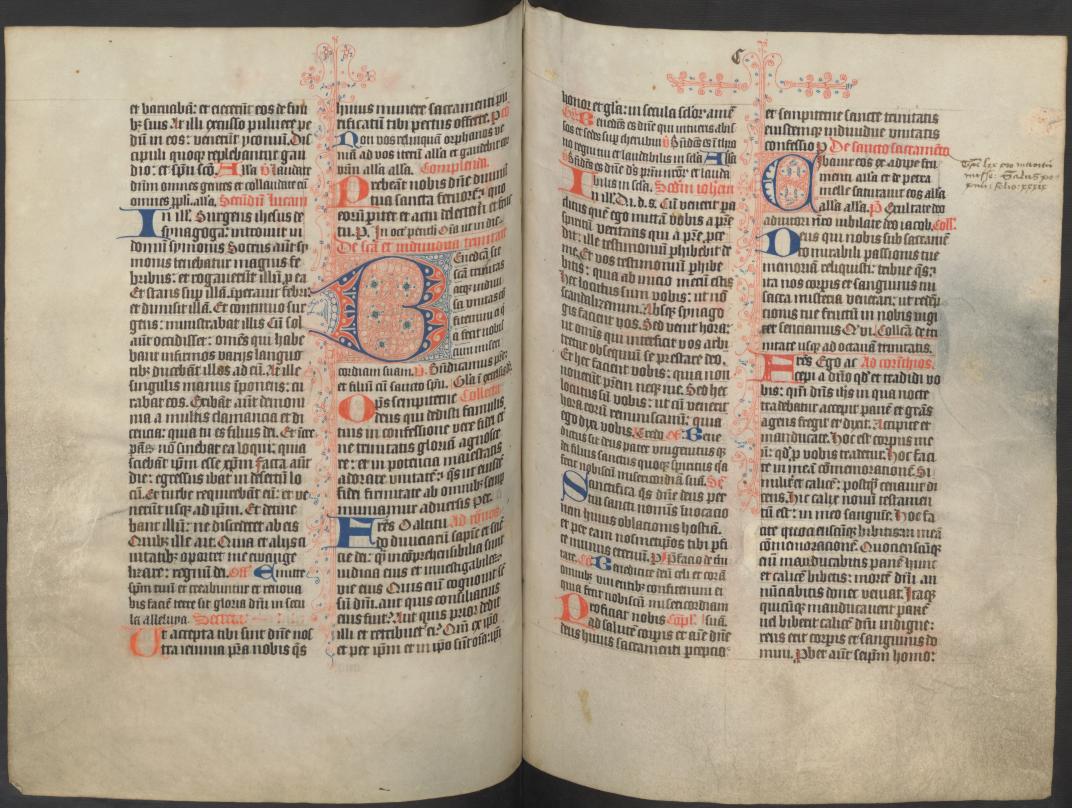 et curabat et eiecerit eos de fini
bꝫ suis At illi excusso pulvere pe
dũ in eos: venerũt yconiũ. Dis
cipuli quoqꝫ replebantur gau
dio: et spũ sc̃o. Alla ℣ laudate
dñm omnes gentes et collaudate eũ
omnes ppl̃i.alla. Secũdũ lucam
In ill̃. Surgens ihesus de
synagoga: introivit in
domũ symonis Socrus aũt sy
monis tenebatur magnis fe
bribus: et rogaverũt illũ ꝓ ea
Et stans sup illã. ĩperavit febri:
et dimisit illã. Et continuo sur
gens: ministrabat illis Cũ sol
aũt occidisset: om̃es qui habe
bant infirmos varijs languo
ribꝫ ducebant illos ad eũ. At ille
singulis manus ĩponens: cu
rabat eos. Exibãt aũt demoni
a a multis clamancia et di
cencia: quia tu es filius dei. Et ĩcre
pãs: nõ sinebat ea loqui: quia
sciebãt ip̃m esse xp̃m facta aũt
die: egressus ibat in desertũ lo
cũ. Et turbe requirebãt eũ: et ve
nerũt usqꝫ ad ip̃m. Et detine
bant illũ: ne discederet ab eis
Quibꝫ ille ait. Quia et alijs ci
vitatibꝫ oportet me ewange
lizare: regnũ dei. Off̃ Emitte
sp̃m tuũ et creabuntur et renova
bis faciẽ terre sit gloria dñi in secu
la alleluya. Secreta
Ut accepta tibi sint dñe nos
tra ieiunia p̃sta nobis q̃s
huius munere sacramenti pu
rificatũ tibi pectus offerre. P cõ
Non vos relinquã orphanos ve
niã ad vos iterũ alla et gaudebit cor
vr̃m alla alla. Complenda
Prebeant nobis dñe divinũ
tua sancta fervorẽ: quo
eorũ pariter et actu delectet̃ et fruc
tu. P.
De sc̃a et individua trinitate
Benedcã sit
sc̃a trinitas
atqꝫ indivi
sa unitas cõ
fitemur ei q
a fecit nobis
cum miseri
cordiam suam. p̃. Bñdicamus p̃rẽ:
et filiũ cũ sancto spũ.
Collecta
Om̃ps sempiterne
deus qui dedisti famulis
tuis in confessione vere fidei et
ne trinitatis gloriã agnosce
re: et in potencia maiestatis
adorare unitatẽ: q̃s ut eiusdẽ
fidei firmitate ab omnibꝫ semꝑ
muniamur adversis Per.
Fr̃es O altitu Ad roños
do diviciarũ sapiẽ et sciẽ
cie dei: q̃ incõprehensibilia sunt
iudicia eius et investigabiles
vie eius Quis eñi cognovit sẽ
sũ dñi. aut quis consiliarius
eius fuit? Aut quis prior dedit
illi et retribuet̃ ei? Qm̃ ex ip̃o
et per ip̃m et in ip̃o sũt oĩa: ip̃i
honor et glĩa: in secula sclor̃ amẽ
Benedcũs es dñe qui intueris abis
sos et sedes sup cherubin ℣ Bñdcũs es ĩ thro
no regni tui et laudabilis in scl̃a Alla
℣ Bñdcũs es dñe ds p̃rm nr̃or et lauda
bilis in scl̃a. Scd̃m ioh̃em
In ill̃. Dix. ih̃s. d. s. Cũ venerit pa
raclitus quẽ ego mittã vobis a pr̃e
spiritũ veritatis qui a pr̃e pce
dit: ille testimoniũ phibebit de
me. Et vos testimoniũ phibe
bitis: quia ab inicio mecũ estis
Hec locutus sum vobis: ut nõ
scandalizemini. Absqꝫ synago
gis facient vos. Sed venit hora:
ut om̃is qui interficit vos arbi
tretur obsequiũ se prestare deo.
Et hec facient vobis: quia non
noverũt pr̃em neqꝫ me. Sed hec
locutus sũ vobis: ut cũ venerit
hora eorũ reminiscamini: quia
ego dixi vobis. Credo off̃. Bene
dictus sit deus pater unigenitusqꝫ
dei filius sanctus quoqꝫ spiritus q̃a
fecit nobiscũ misericordiã suã. Sẽ
Sanctifica q̃s dñe deus per
tui sancti nominis invocacio
nem huius oblationis hostiã.
et per eam nosmetip̃os tibi pfi
ce munus eternũ. P P̃facio de t̃ni
tate. cõ Benedicite deũ celi et corã
omnibꝫ viventibꝫ confitemini ei
quia fecit nobiscũ misericordiam
suã. Cõpl̃.
Proficiat nobis
ad salutẽ corpis et aĩe dñe
deus huius sacramenti pcepcio
C
et sempiterne sancte trinitatis
eiusdemqꝫ individue unitatis
confessio P De sancto sacramẽto
Cibavit eos ex adipe fru
menti alla et de petra
melle saturavit eos alla
alla alla. p̃. Exultate deo
adiutori nr̃o iubilate deo iacob. Coll̃.
Deus qui nobis sub sacramẽ
to mirabili passionis tue
memoriã reliquisti: tribue q̃s:
ita nos corpis et sanguinis tui
sacra misteria venerari: ut redẽp̃
cionis tue fructũ in nobis iugi
ter senciamus Q vi. Collc̃ã de tri
nitate usqꝫ ad octavã trinitatis.
Fr̃es Ego ac Ad corinthios.
cepi a dño qđ et tradidi vo
bis: qm̃ dñs ih̃s in qua nocte
tradebatur accepit panẽ et grãs
agens fregit et dixit. Accipite et
manducate. Hoc est corpus me
ũ: qđ p vobis tradetur. Hoc faci
te in meã cõmemorationẽ. Si
mil'r et calicẽ: postq̃ cenavit di
cens. Hic calix novũ testamen
tũ est: in meo sanguine. Hoc fa
cite quociensc̃ũqꝫ bibitis: in meã
cõmemorationẽ. Quociensc̃ũqꝫ
eñi manducabitis panẽ hunc
et calicẽ bibetis: mortẽ dñi an
nũciabitis donec veniat. Itaqꝫ
quicũqꝫ manducaverit panẽ
vel biberit calicẽ dñi indigne:
reus erit corpis et sanguinis do
mini. Probet aũt seip̃m homo: